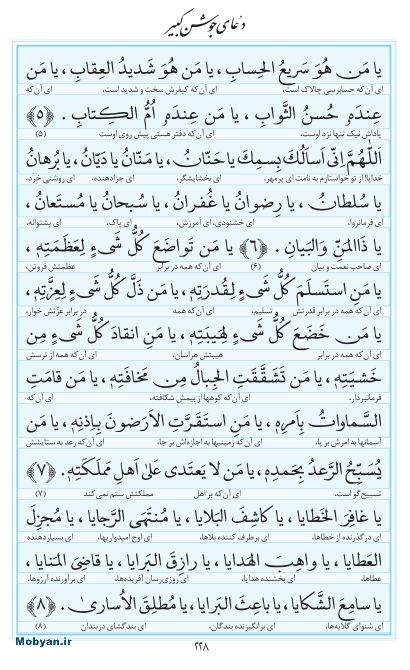 دعای جوشن کبیر
یا مَن هُوَ سَریعُ الحِسابِ ، یا مَن هُوَ شَدیدُ العِقابِ ، یا مَن
ای آن‌که حسابرسی چالاک است، ای آن‌که کیفرش سخت و شدید است، ای آن‌که
عِندَهٗ حُسنُ الثَّوابِ ، یا مَن عِندَهٗ اُمُّ الکِتابِ . ﴿۵﴾
پاداش نیک تنها نزد اوست، ای آن‌که دفتر هستی پیش روی اوست (۵)
اَللّٰهُمَّ اِنّی اَسأَلُکَ بِسمِکَ یا حَنّانُ ، یا مَنّانُ یا دَیّانُ ، یا بُرهانُ
خدایا! از تو خواستارم به نامت ای پرمهر، ای بخشایشگر، ای جزادهنده، ای روشنی خِرد،
یا سُلطانُ ، یا رِضوانُ یا غُفرانُ ، یا سُبحانُ یا مُستَعانُ ،
ای فرمانروا، ای خشنودی، ای آمرزش، ای پاک، ای پشتوانه،
یا ذَاالمَنِّ وَالبَیانِ . ﴿۶﴾ یا مَن تَواضَعَ کُلُّ شَیءٍ لِعَظَمَتِهٖ ،
ای صاحب نعمت و بیان (۶) ای آن‌که همه در برابر عظمتش فروتن،
یا مَنِ استَسلَمَ کُلُّ شَیءٍ لِقُدرَتِهٖ ، یا مَن ذَلَّ کُلُّ شَیءٍ لِعِزَّتِهٖ ،
ای آن‌که همه در برابر قدرتش تسلیم، ای آن‌که همه در برابر عزّتش خوار،
یا مَن خَضَعَ کُلُّ شَیءٍ لِهَیبَتِهٖ ، یا مَنِ انقادَ کُلُّ شَیءٍ مِن
ای آن‌که همه در برابر هیبتش هراسان، ای آن‌که همه از ترسش
خَشیَتِهٖ ، یا مَن تَشَقَّقَتِ الجِبالُ مِن مَخافَتِهٖ ، یا مَن قامَتِ
فرمانبردار، ای آن‌که کوهها از بیمش شکافته، ای آن‌که
السَّماواتُ بِاَمرِهٖ ، یا مَنِ استَقَرَّتِ الاَرَضونَ بِاِذنِهٖ ، یا مَن
آسمانها به امرش بر پا، ای آن‌که زمینها به اجازه‌اش بر جا، ای آن‌که رعد به ستایشش
یُسَبِّحُ الرَّعدُ بِحَمدِهٖ ، یا مَن لا یَعتَدی عَلیٰ اَهلِ مَملَکَتِهٖ . ﴿۷﴾
تسبیح‌گو است، ای آن‌که بر اهل مملکتش ستم نمی‌کند (۷)
یا غافِرَ الخَطایا ، یا کاشِفَ البَلایا ، یا مُنتَهَی الرَّجایا ، یا مُجزِلَ
ای درگذرنده از خطاها، ای برطرف کننده بلاها، ای اوج امیدواریها، ای بسیاردهنده
العَطایا ، یا واهِبَ الهَدایا ، یا رازِقَ البَرایا ، یا قاضِیَ المَنایا ،
عطاها، ای بخشنده هدایا، ای روزی‌رسان آفریده‌ها، ای برآورنده آرزوها،
یا سامِعَ الشَّکایا ، یا باعِثَ البَرایا ، یا مُطلِقَ الاُساریٰ . ﴿۸﴾
ای شنوای گلایه‌ها، ای برانگیزنده بندگان، ای بندگشای دربندان (۸)
Mobyan.ir
۲۲۸